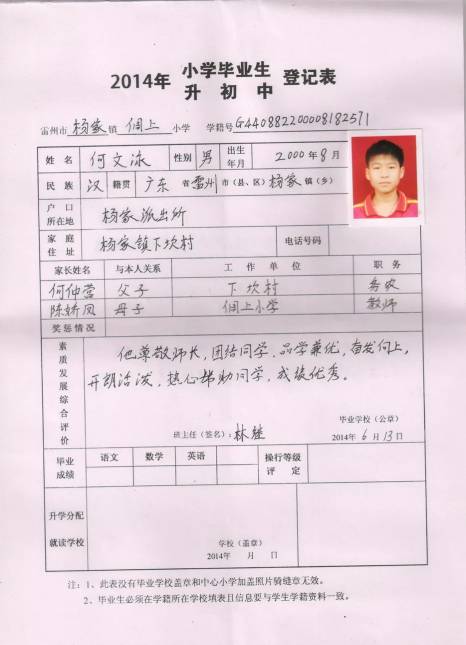 2014年 小学毕业生 登记表
升初中
雷州市 杨家 镇 佃上 小学 学籍号 G440882200008182571
姓名 何文泳 性别 男 出生年月 2000年8月
民族 汉 籍贯 广东 省 雷州 市(县、区) 杨家 镇(乡)
户口所在地 杨家派出所
家庭住址 杨家镇下坎村 电话号码
家长姓名 与本人关系 工作单位 职务
何仲营 父子 下坎村 务农
陈娇凤 母子 佃上小学 教师
奖惩情况
素质发展综合评价
他尊敬师长,团结同学,品学兼优,奋发向上,
开朗活泼,热心帮助同学,成绩优秀。
毕业学校(公章)
班主任(签名): 林 2014年6月13日
毕业成绩 语文 数学 英语 操行等级评定
升学分配
就读学校
学校(盖章)
2014年 月 日
注:1、此表没有毕业学校盖章和中心小学加盖照片骑缝章无效。
2、毕业生必须在学籍所在学校填表且信息要与学生学籍资料一致。